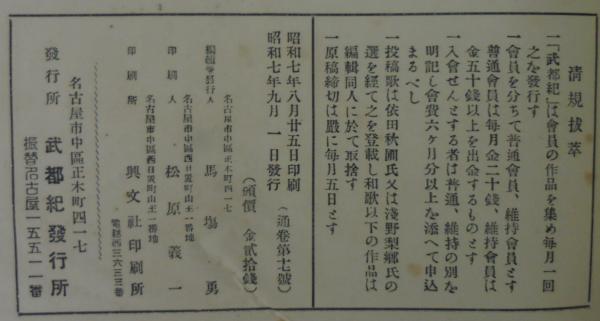 清規拔萃
一「武都紀」は會員の作品を集め每月一回
之を發行す
一會員を分ちて普通會員、維持會員とす
普通會員は每月金二十錢、維持會員は
金五十錢以上を出金するものとす
一入會せんとする者は普通、維持の別を
明記し會費六ケ月分以上を添へて申込
まるべし
一投稿歌は依田秋圃氏又は淺野梨鄕氏の
選を經て之を登載し和歌以下の作品は
編輯同人に於て取捨す
一原稿締切は嚴に每月五日とす
昭和七年八月廿五日印刷
(通卷第十七號)
昭和七年九月 一日發行
(頒價 金貳拾錢)
名古屋市中區正木町四一七
編輯兼發行人 馬場 勇
名古屋市中區西日置町山王一番地
印刷人 松原義一
名古屋市中區西日置町山王一番地
印刷所 興文社印刷所
電話西三六三三番
名古屋市中區正木町四一七
發行所 武都紀發行所
振替名古屋一五五一一番